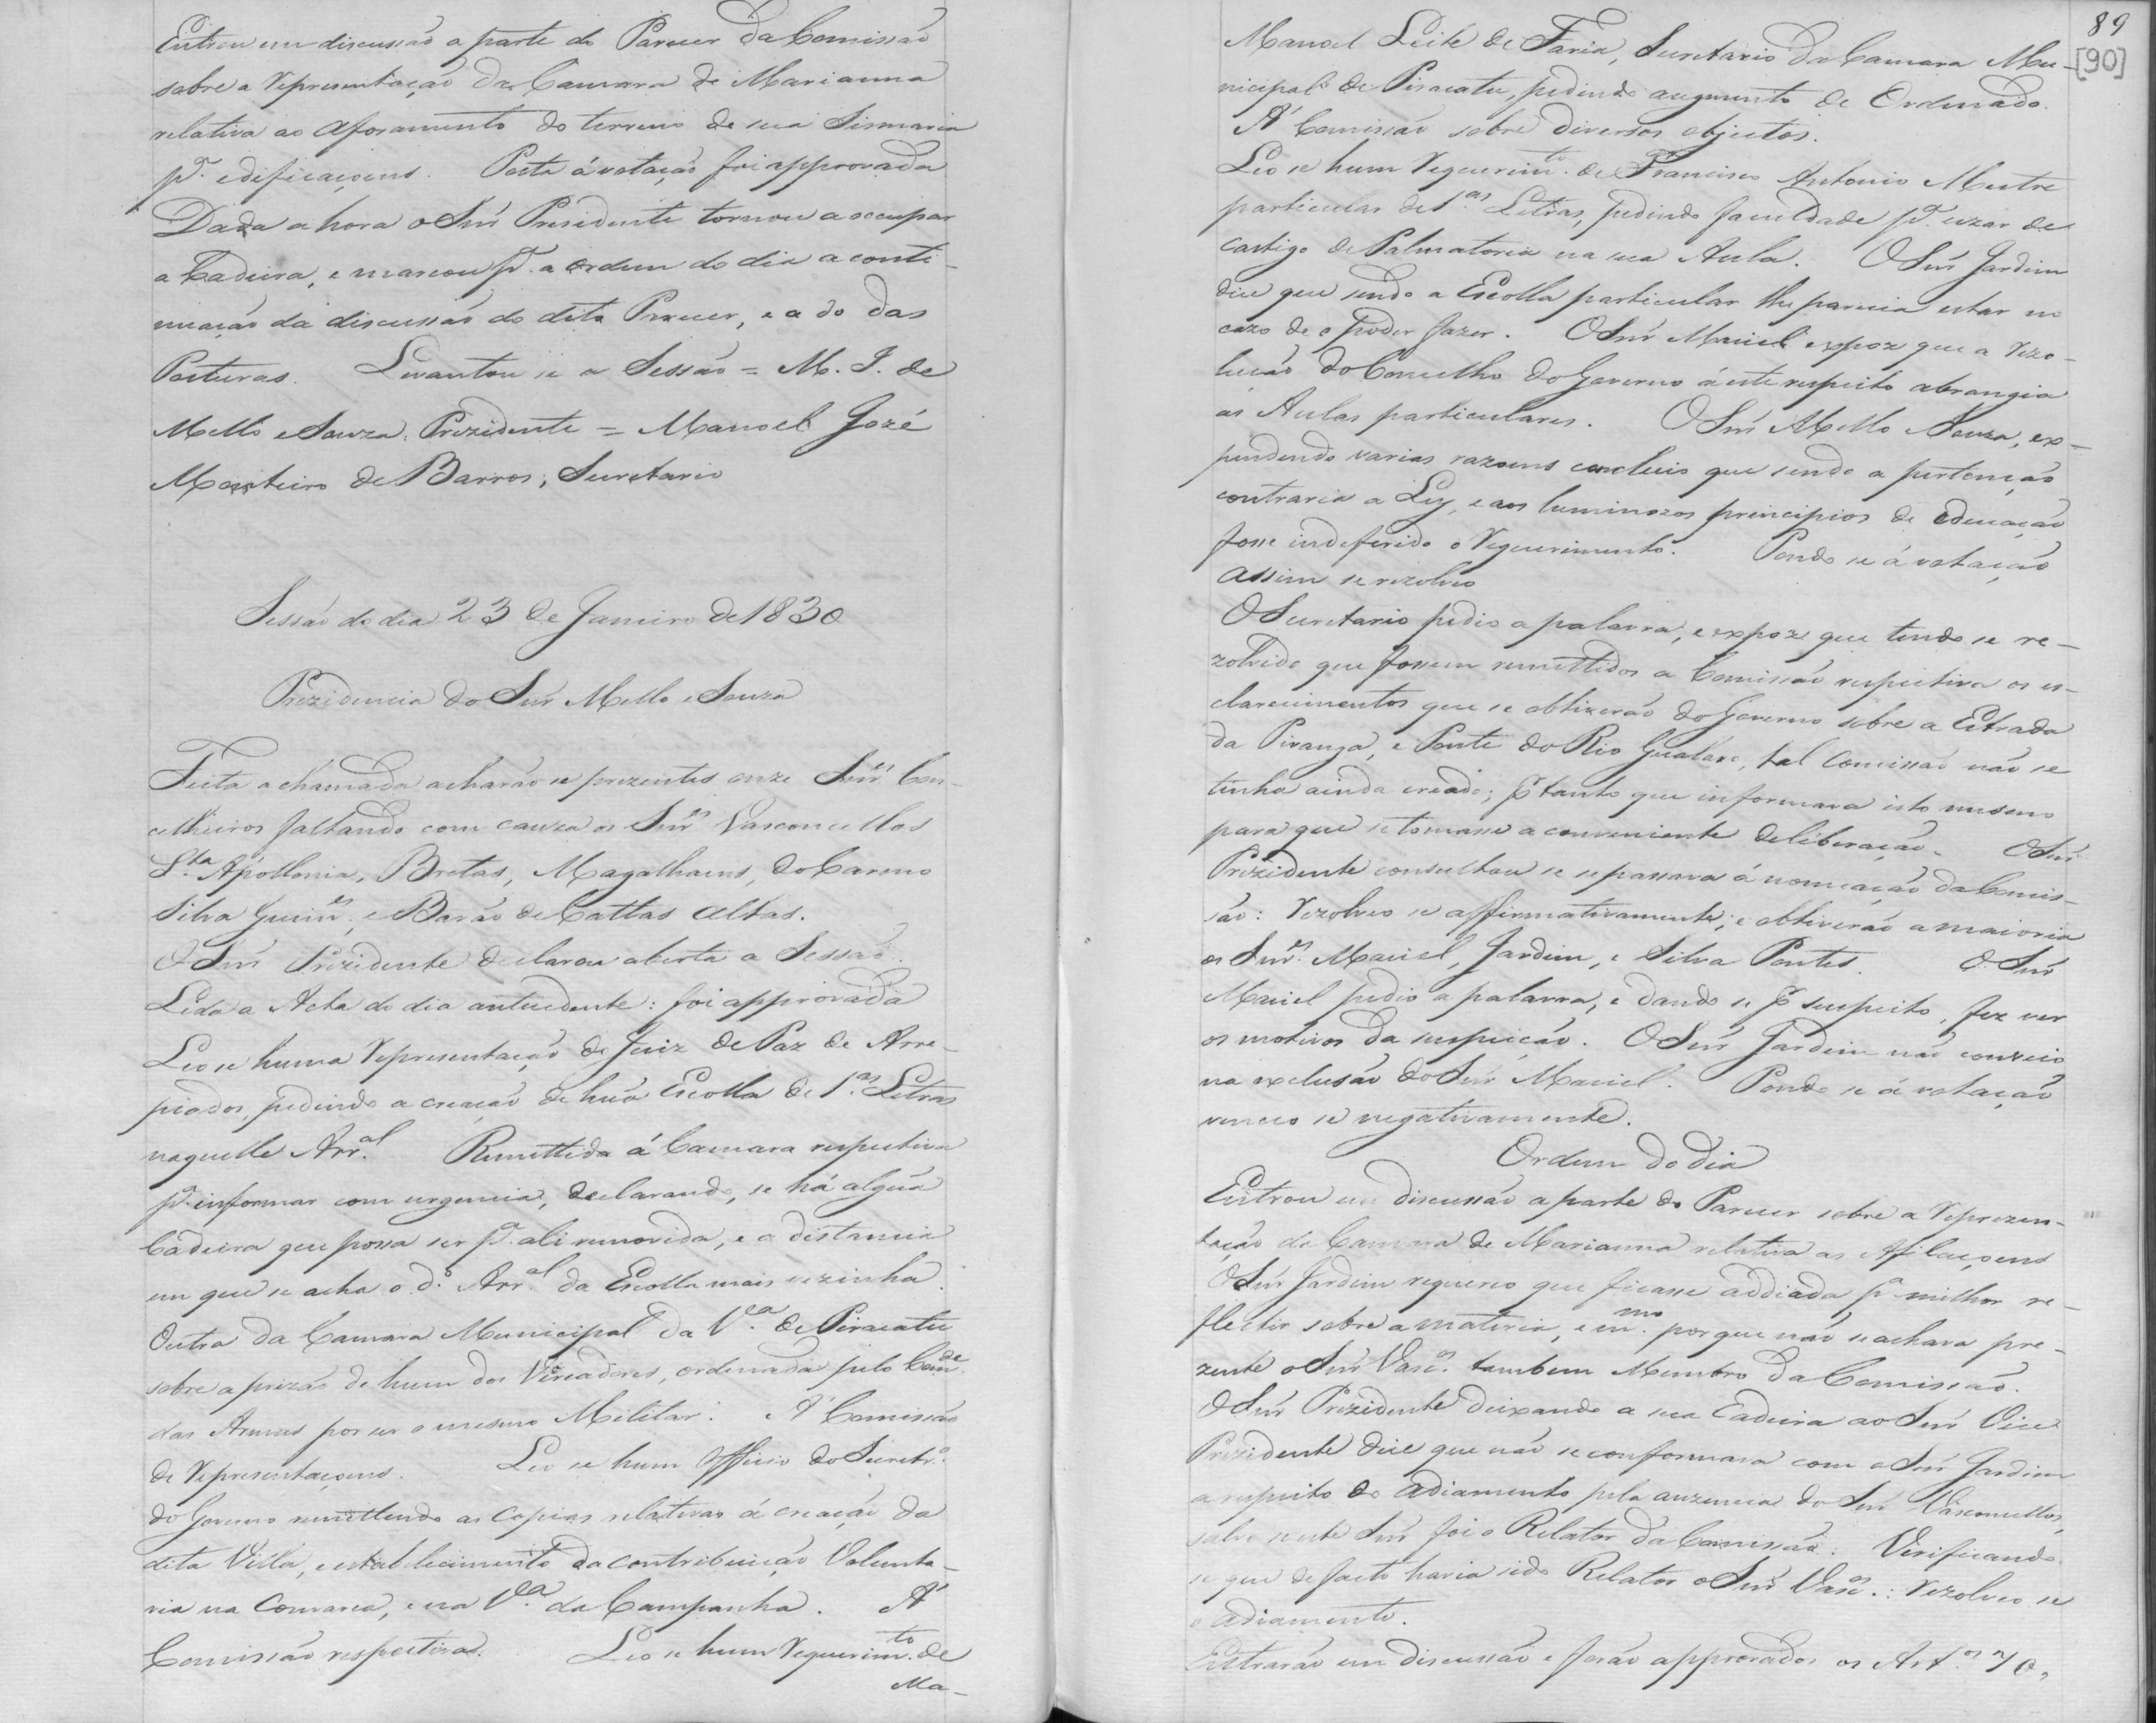 Entrou em discussão a parte do Parecer da Comissão
sobre a Representação da Camara de Marianna
relativa ao aforamento do terreno de sua Sismaria
pª. edificaçoens. Posta á votação foi approvada
Dada a hora o Snr Presidente tornou a occupar
a Cadeira, e marcou pª. a Ordem do dia a conti-
nuação da discussão do dito Parecer, e a do das
Posturas. Levantou se a Sessão = M. I. de
Mello e Souza, Prezidente = Manoel Jozé
Monteiro de Barros, Secretario
Sessão do dia 23 de Janeiro de 1830
Prezidencia do Snr Mello e Souza
Feita a chamada acharão se prezentes onze Snres Con-
celheiros faltando com cauza os Snres Vasconcellos
Sta Apollonia, Bretas, Magalhaens, do Carmo
Silva Guimes, e Barão de Cattas Altas.
O Snr Prezidente declarou aberta a Sessão.
Lida a Acta do dia antecedente: foi approvada
Leo se huma Representação do Juiz de Paz de Arre-
piados, pedindo a creação de huã Escolla de 1.as Letras
naquelle Arr.al Remettida á Camara respectiva
pª. informar com urgencia, declarando, se há algũa
Cadeira que possa ser pª. ali removida, e a distancia
em que se acha o d.º Arr.al da Escolla mais vizinha.
Outra da Camara Municipal da V.ª de Piracatu
sobre a prizão de hum dos Vereadores, ordenada pelo Com.de
das Armas por ser o mesmo Militar. A' Comissão
de Representaçoens. Leo se hum Officio do Secretr.º
do Governo remettendo as Copias relativas á creação da
dita Villa, e estabelecimento da contribuição Volunta-
ria na Comarca, e na V.ª da Campanha. A'
Comissão respectiva. Leo se hum Requerim.to de
Ma-
89
[90]
Manoel Leite de Faria, Secretario da Camara Mu-
nicipal de Piracatu, pedindo augmento de Ordenado.
A' Comissão sobre diversos objectos.
Leo se hum Requerim.to de Francisco Antonio Mestre
particular de 1.as Letras, pedindo faculdade pª. uzar de
castigo de Palmatoria na sua Aula. O Snr Jardim
dice que sendo a Escolla particular lhe parecia estar no
cazo de o poder fazer. O Snr Maciel expoz que a Rezo-
lução do Concelho do Governo á este respeito abrangia
as Aulas particulares. O Snr Mello e Souza, ex-
pendendo varias razoens concluio que sendo a pertenção
contraria a Ley, e aos luminozos principios de educação
fosse indeferido o Requerimento. Pondo se á votação
assim se rezolveo
O Secretario pedio a palavra, e expoz que tendo se re-
zolvido que fossem remettidos a Comissão respectiva os es-
clarecimentos que se obtiverão do Governo sobre a Estrada
da Piranga, e Ponte do Rio Gualaxo, tal Comissão não se
tinha ainda creado; p.r tanto que informava isto mesmo
para que se tomasse a conveniente deliberação. O Snr
Prezidente consultou se se passava á nomeação da Comis-
são: Rezolveo se affirmativamente; e obtiverão a maioria
os Snres Maciel, Jardim, e Silva Pontes. O Snr
Maciel pedio a palavra, e dando se p.r suspeito, fez ver
os motivos da suspeição. O Snr Jardim não conveio
na exclusão do Snr Maciel. Pondo se á votação
venceo se negativamente.
Ordem do dia
Entrou em discussão a parte do Parecer sobre a Reprezen-
tação da Camara de Marianna relativa as Afilaçoens
O Snr Jardim requereo que ficasse addiada pª. milhor re-
flectir sobre a materia, e m.mo porque não se achava pre-
zente o Snr Vasc.os tambem Membro da Comissão.
O Snr Prezidente deixando a sua Cadeira ao Snr Vice
Prezidente dice que não se conformava com o Snr Jardim
a respeito do adiamento pela auzencia do Snr Vasconcellos,
salvo se este Snr foi o Relator da Comissão: Verificando
se que de facto havia sido Relator o Snr Vasc.os: Rezolveo se
o adiamento.
Entrarão em discussão e forão approvados os Art.os 70,